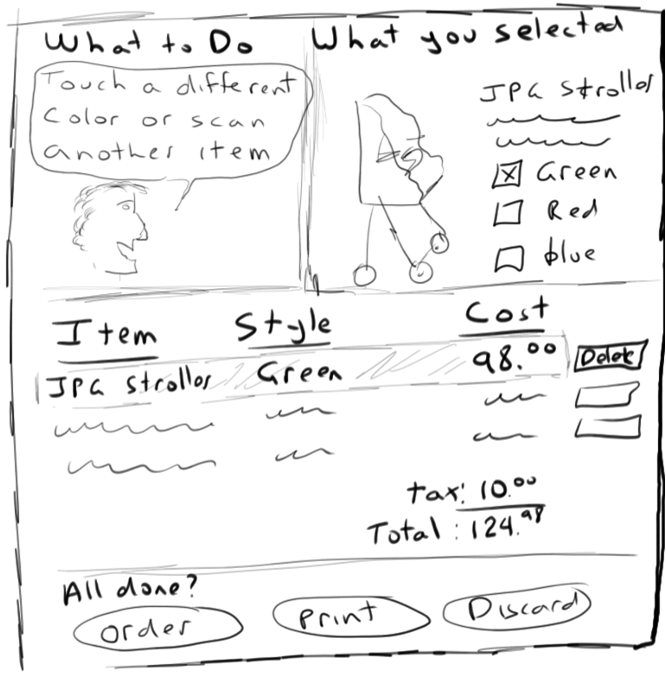 What to Do
Touch a different
Color or scan
another item
What you selected
JPG Stroller
Green
Red
blue
Item Style Cost
JPG Stroller Green 98.00 Delete
tax: 10.00
Total: 124.98
All done?
Order Print Discard